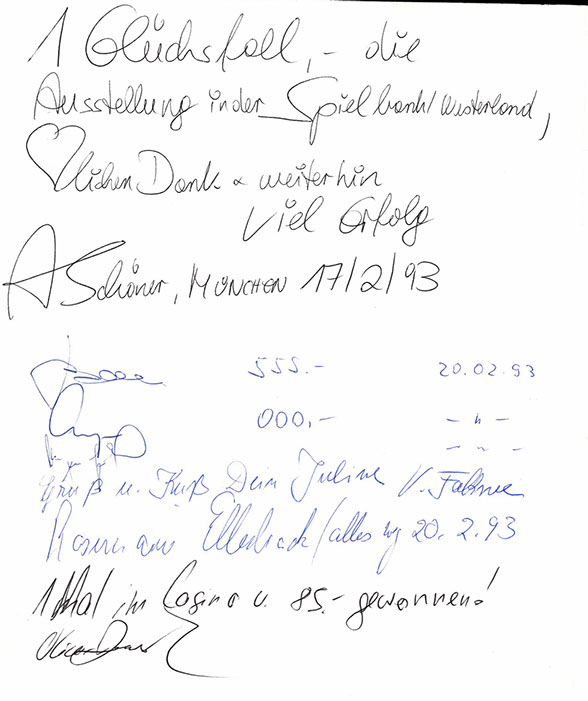 1 Glücksfall, - die
Ausstellung in der Spielbank/Westerland,
♡lichen Dank & weiterhin
viel Erfolg
A Schöner, MÜNCHEN 17/2/93
555.- 20.02.93
000,- - " -
- " -
Gruß u. Kuß Dein Julius V.
20.2.93
1 Mal im Casino u. 85.- gewonnen!